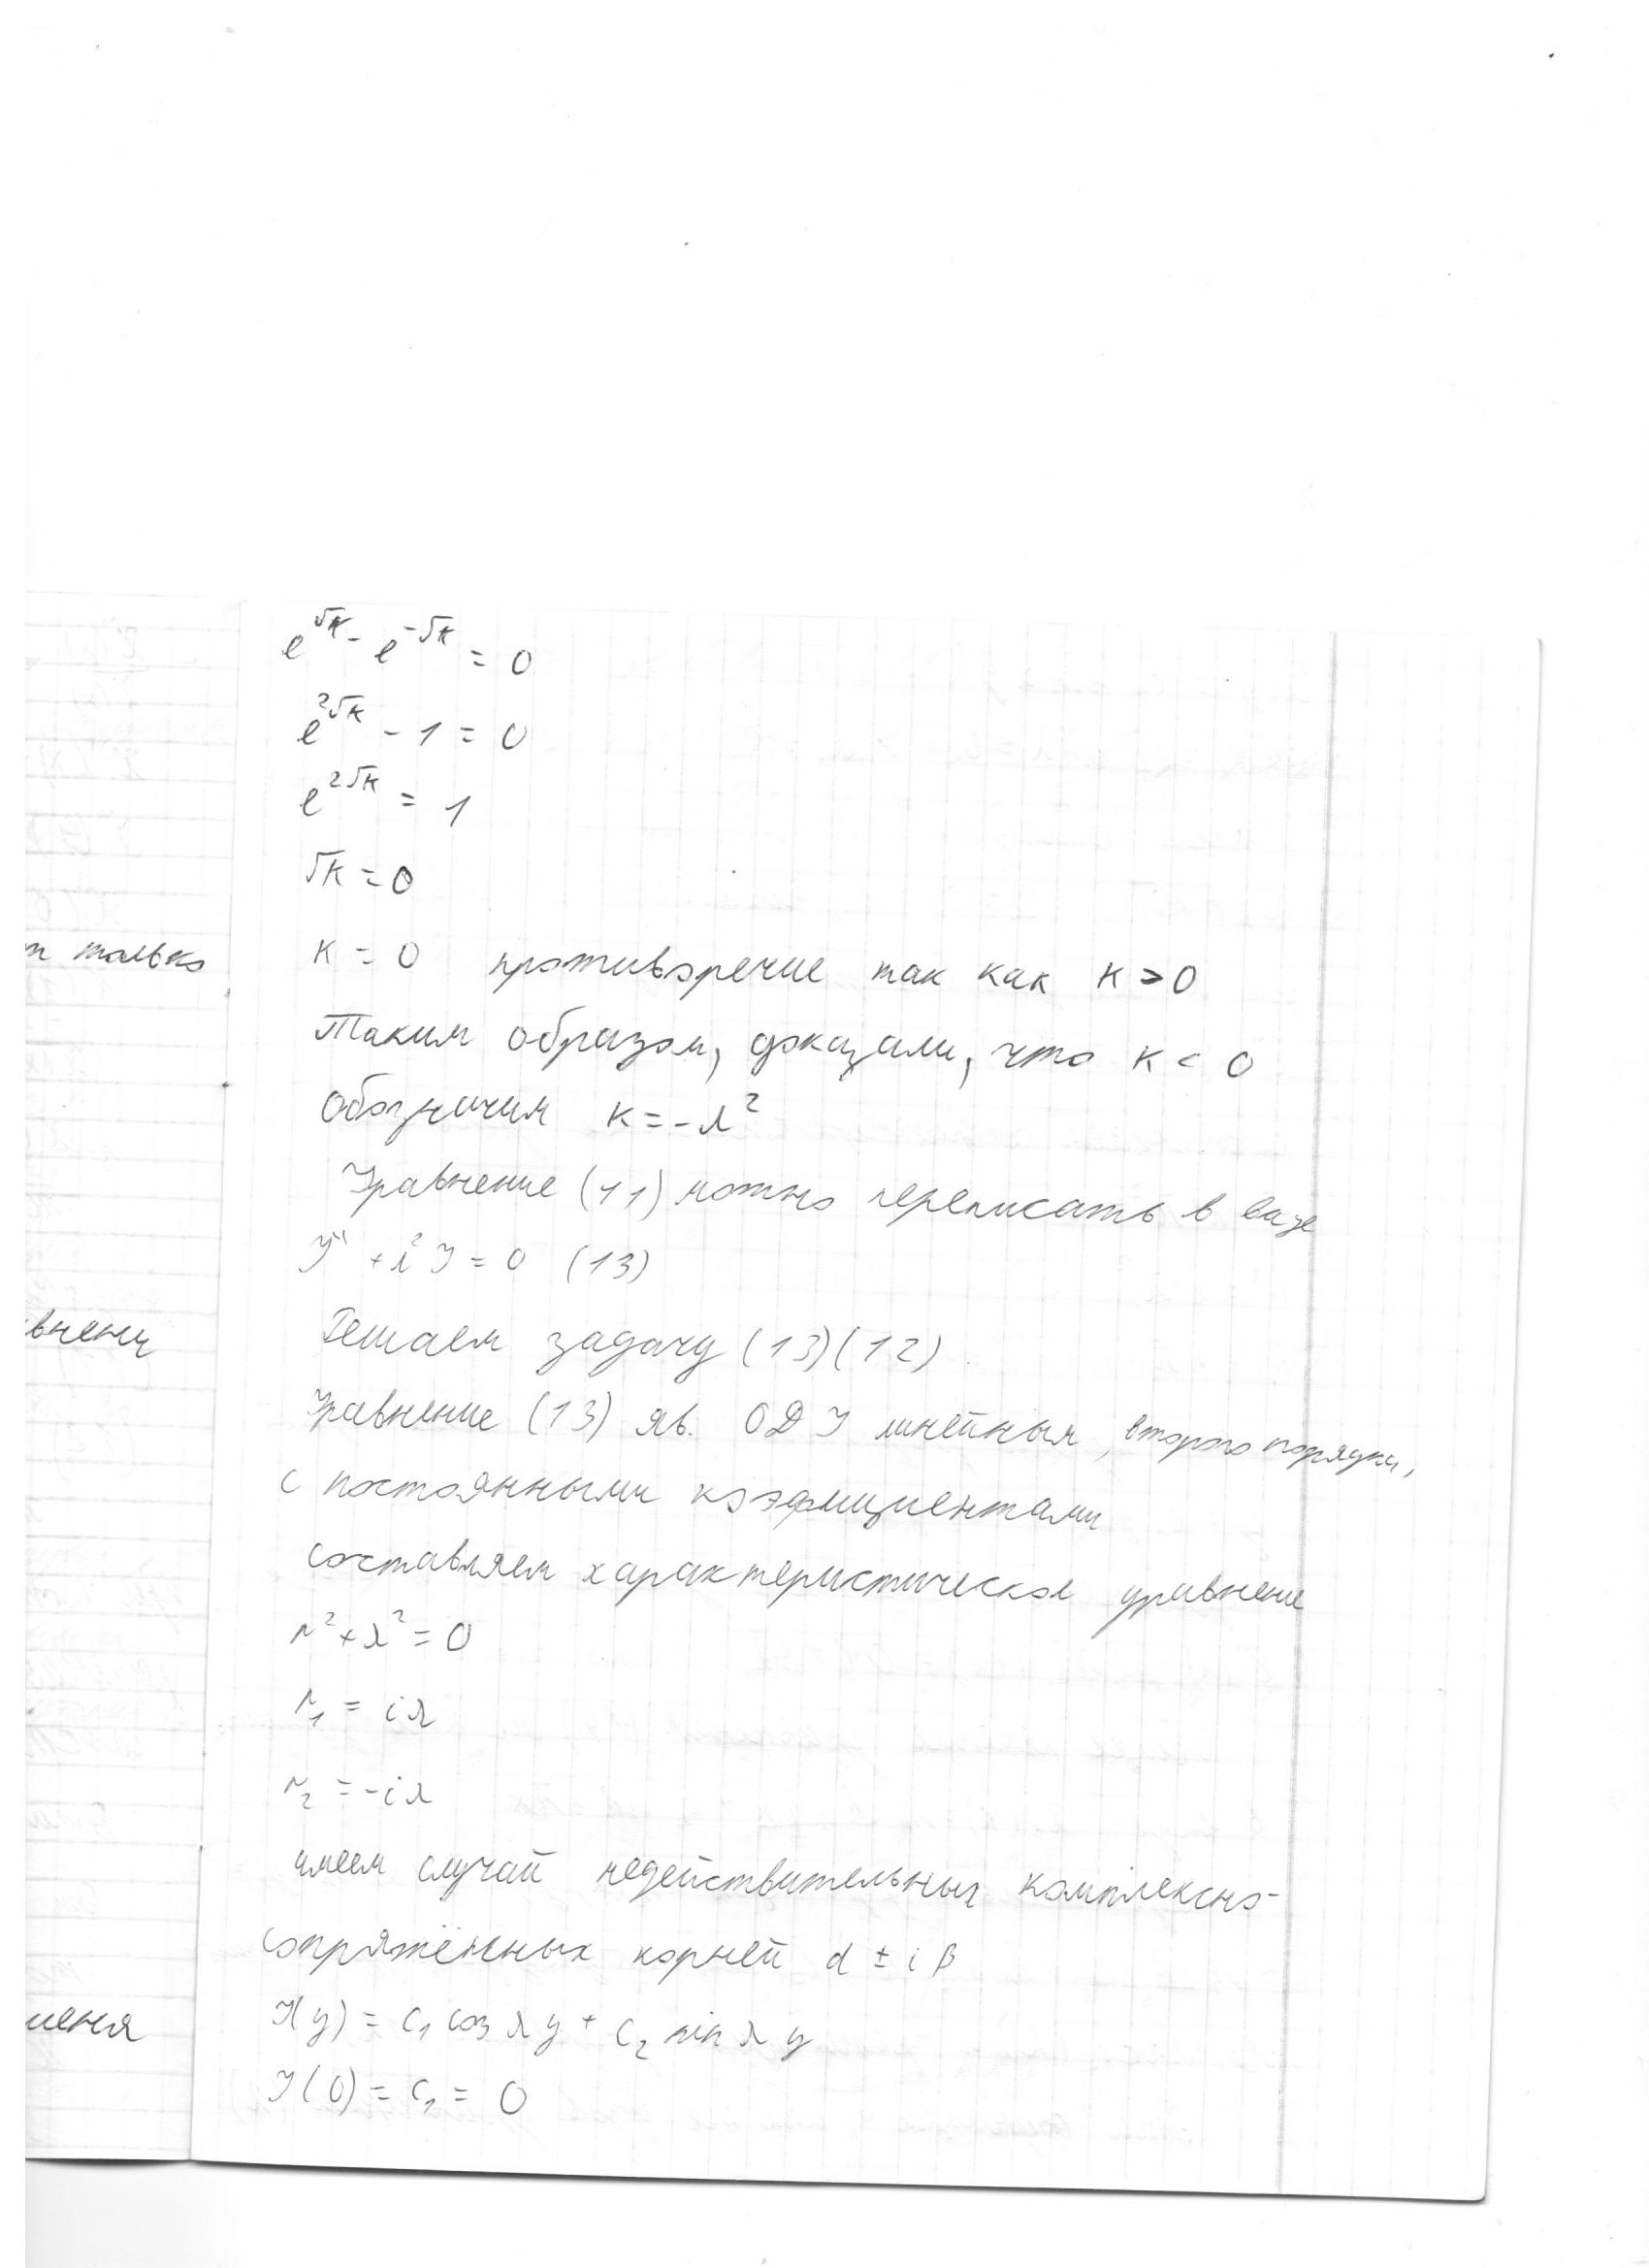 e^√k - e^-√k = 0
e^2√k - 1 = 0
e^2√k = 1
√k = 0
k = 0 противоречие так как k > 0
Таким образом, доказали, что k < 0
Обозначим k = -λ²
Уравнение (11) можно переписать в виде
Y'' + λ²Y = 0 (13)
Решаем задачу (13)(12)
Уравнение (13) яв. ОДУ линейным, второго порядка,
с постоянными коэфициентами
составляем характеристическое уравнение
r² + λ² = 0
r₁ = iλ
r₂ = -iλ
имеем случай недействительных комплексно-
сопряжённых корней α ± iβ
Y(y) = c₁ cos λy + c₂ sin λy
Y(0) = c₁ = 0
только